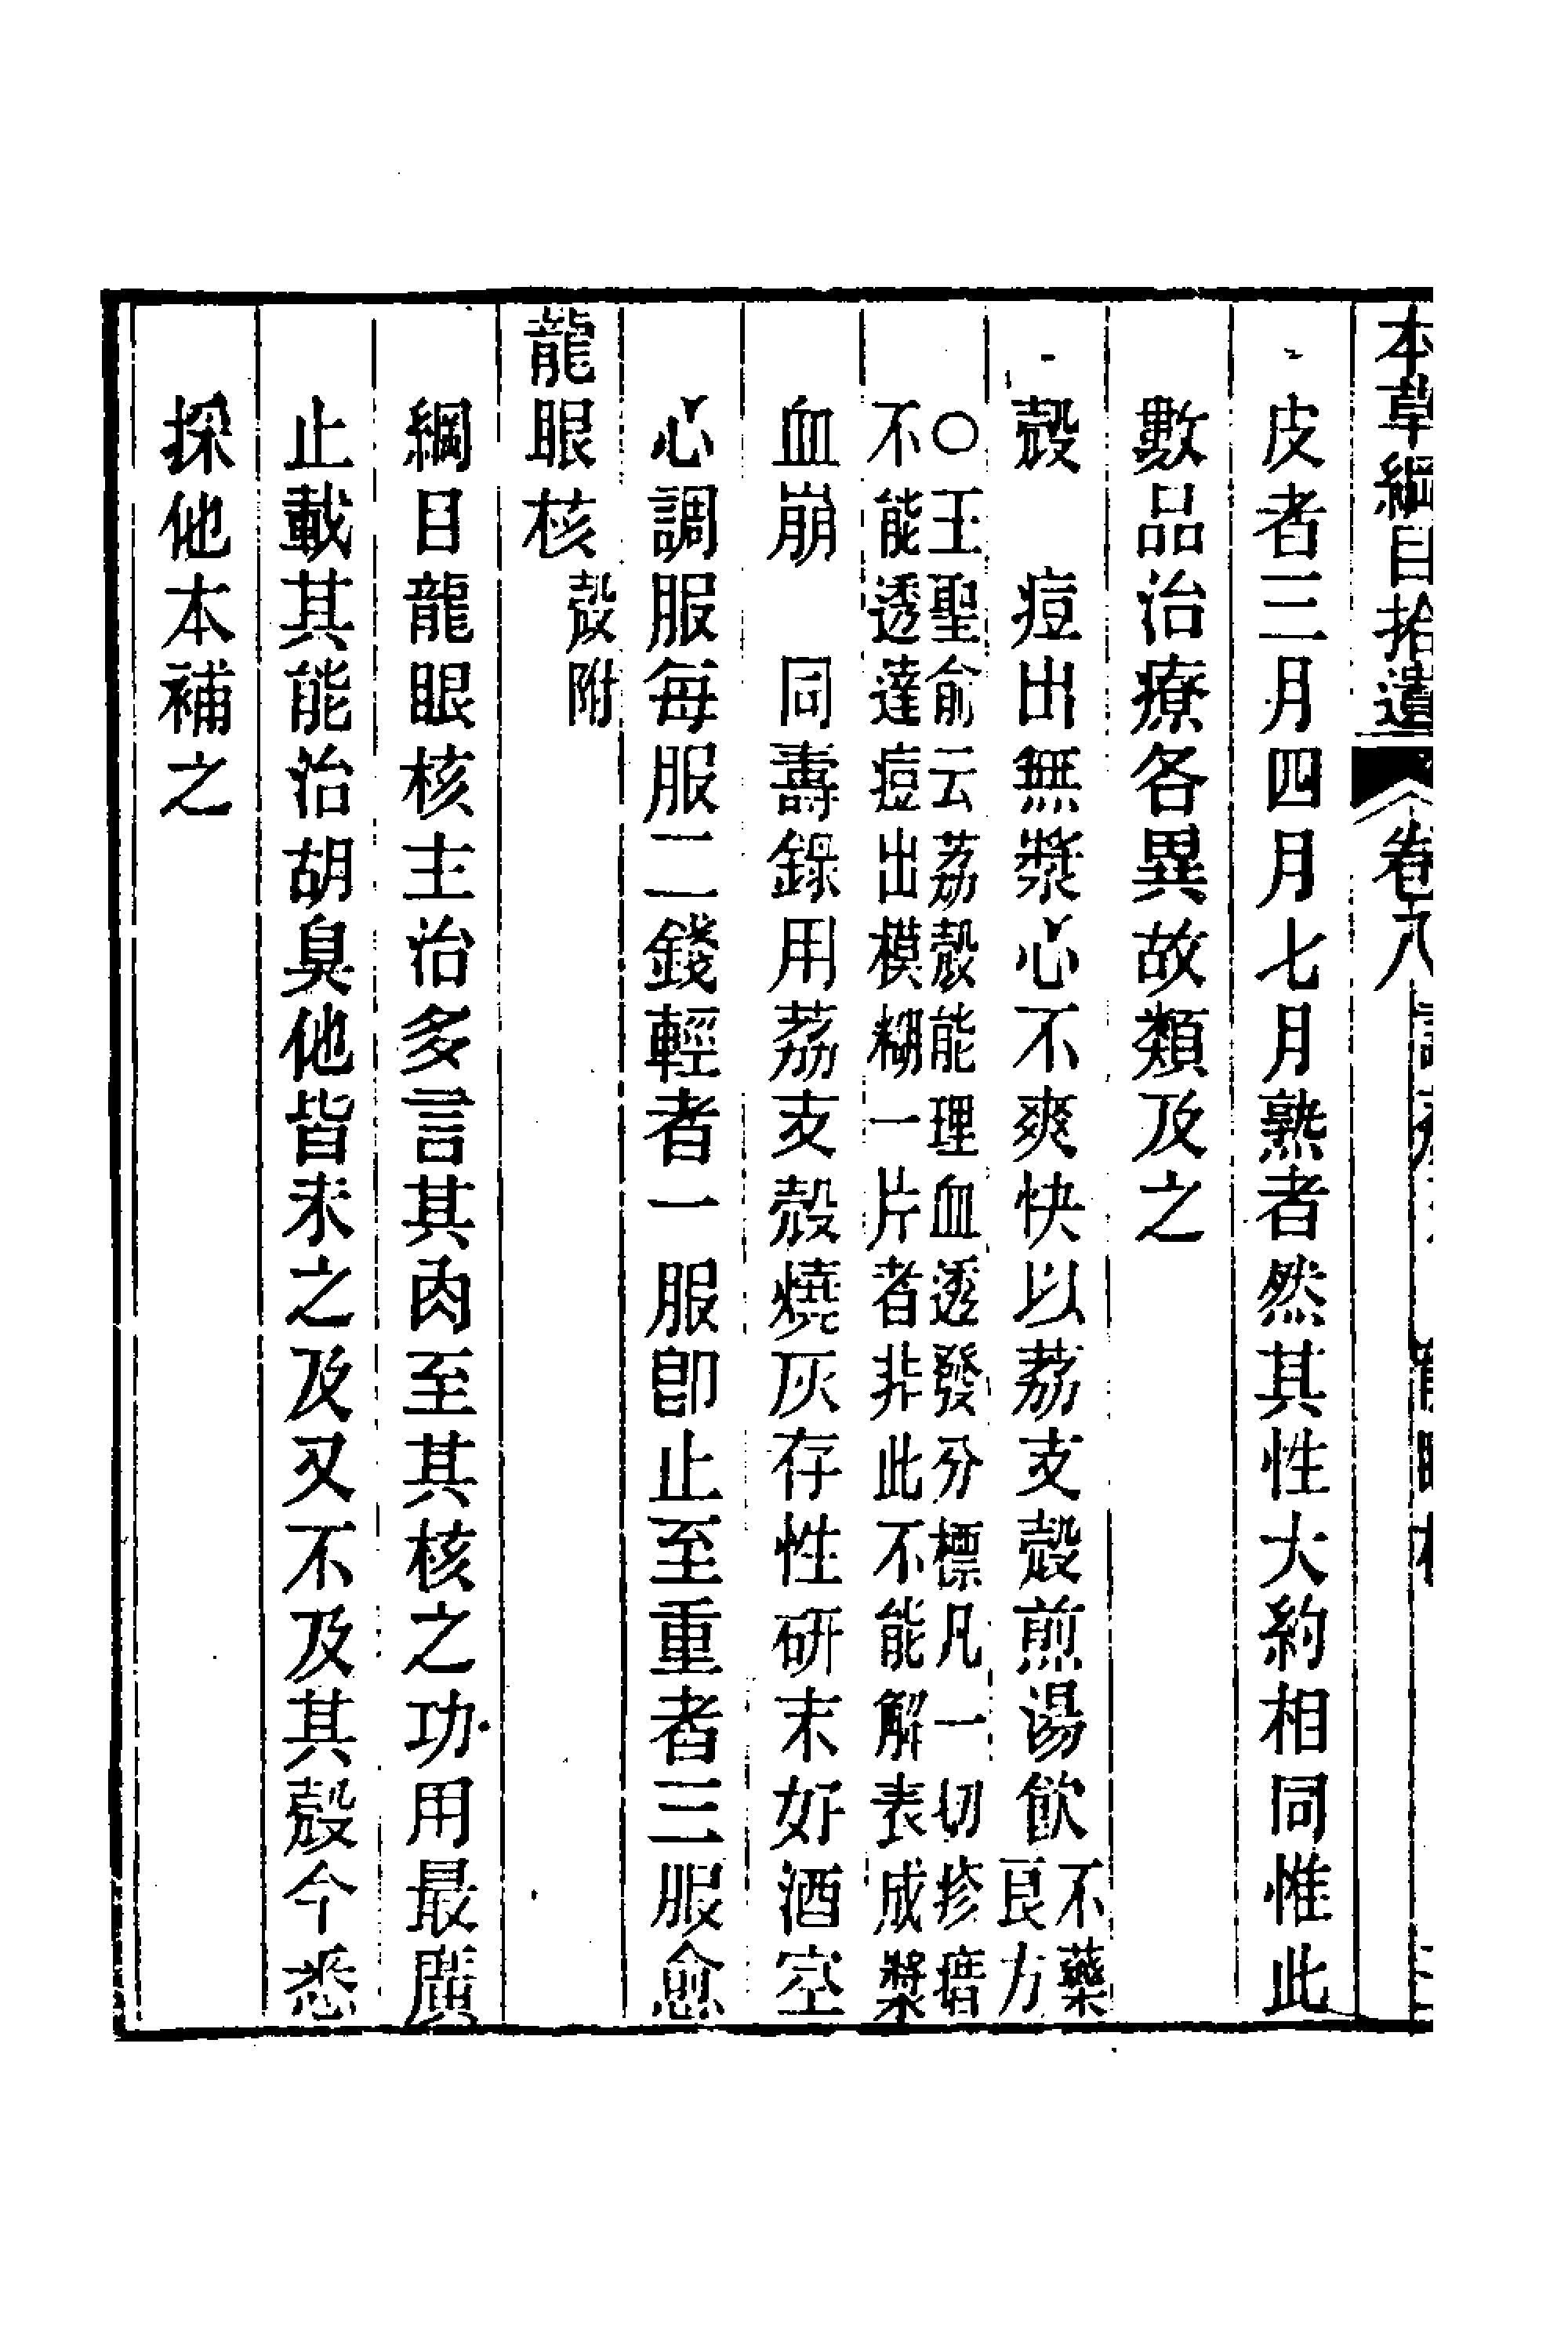 本草綱目拾遺 卷八
皮者三月四月七月熟者然其性大約相同惟此
數品治療各異故類及之
殼　痘出無漿心不爽快以荔支殼煎湯飲不藥
良方
〇王聖俞云荔殼能理血透發分標凡一切疹瘄
不能透達痘出模糊一片者非此不能解表成漿
血崩　同壽錄用荔支殼燒灰存性研末好酒空
心調服每服二錢輕者一服卽止至重者三服愈
龍眼核殼附
綱目龍眼核主治多言其肉至其核之功用最廣
止載其能治胡臭他皆未之及又不及其殼今悉
採他本補之